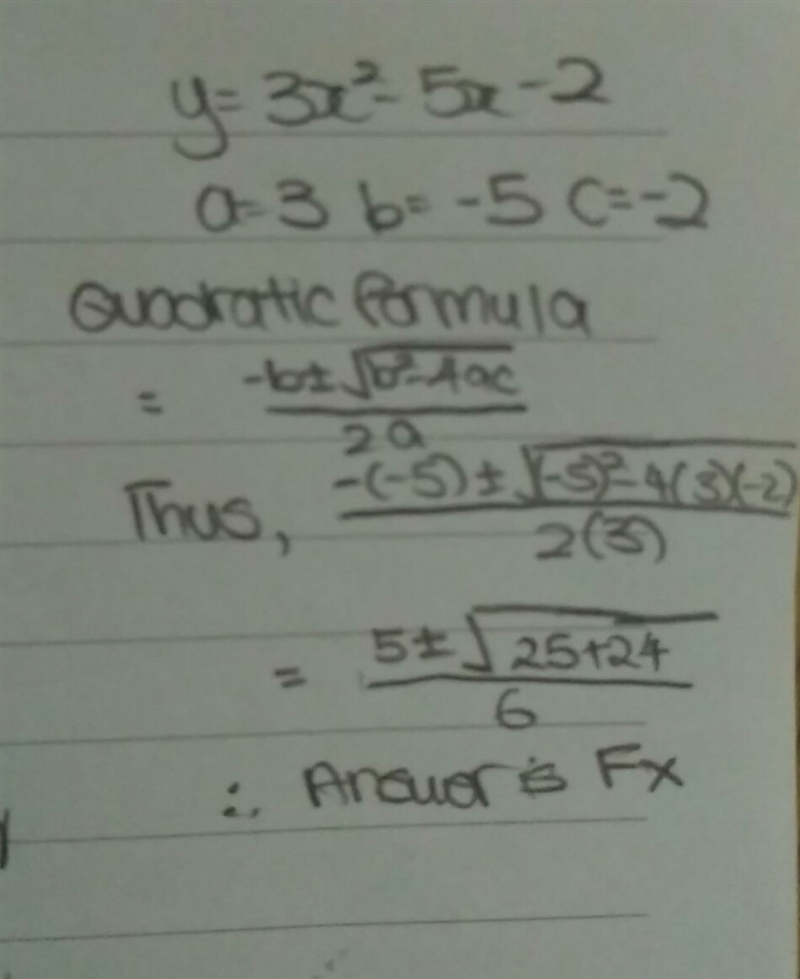 y= 3x²- 5x -2
a= 3 b= -5 c=-2
Quadratic formula
= -b± √b²-4ac
2a
Thus, -(-5) ± √(-5)²-4(3)(-2)
2(3)
= 5± √25+24
6
∴ Answer is Fx